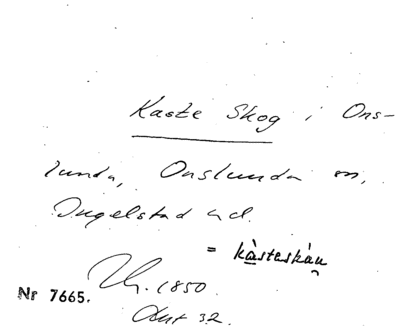 Kaste Skog i Ons-
lunda, Onslunda sn,
Ingelstad hd.
= kàsteskàu
Nr 7665. 1850.
32.